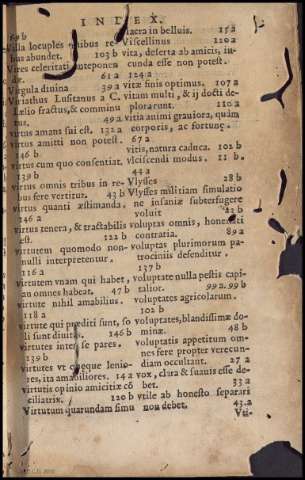 INDEX.
69 b
Villa locuples quibus re-
bus abundet. 103 b
Vires celeritati anteponen
dæ. 61 a
Virgula diuina 39 a
Viriathus Lusitanus a C.
Lælio fractus, & comminu
tus. 49 a
Virtus amans sui est. 132 a
Virtus amitti non potest.
146 b
Virtus cum quo consentiat.
139 b
Virtus omnis tribus in re-
bus fere vertitur. 43 b
Virtus quanti æstimanda.
146 a
Virtus tenera, & tractabilis
est. 122 b
Virtutem quomodo non-
nulli interpretentur.
116 a
Virtutem vnam qui habet,
an omnes habeat. 47 b
Virtute nihil amabilius.
118 a
Virtute qui præditi sunt, so
li sunt diuites. 146 b
Virtutes inter se pares.
139 b
Virtutes vt quæque lenio-
res, ita amabiliores. 14 a
Virtutis opinio amicitiæ cō
ciliatrix. 120 b
Virtutum quarundam simu
sacra in belluis. 15 a
Viscellinus 120 a
vita, deserta ab amicis, iu-
cunda esse non potest.
124 a
Vitæ finis optimus. 107 a
vitam multi, & ij docti de-
plorarunt. 110 a
vitia animi grauiora, quàm
corporis, ac fortunę.
67 a
vitis, natura caduca. 102 b
vlciscendi modus. 11 b.
44 a
Vlysses 28 b
Vlysses militiam simulatio
ne insaniæ subterfugere
voluit 82 b
voluptas omnis, honestati
contraria. 89 a
voluptas plurimorum pa-
trocinijs defenditur.
137 b
voluptate nulla pestis capi-
talior. 99 a. 99 b
voluptates agricolarum.
102 b
voluptates, blandissimæ do-
minæ. 48 b
voluptatis appetitum om-
nes fere propter verecun-
diam occultant. 27 a
vox, clara & suauis esse de-
bet. 33 a
vtile ab honesto separari
non debet. 43. a
Vti-